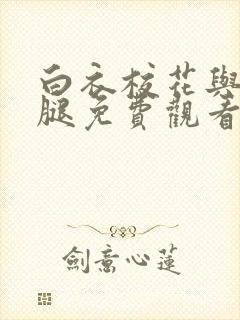 白衣校花與
腿免費觀看
劍意心蓮